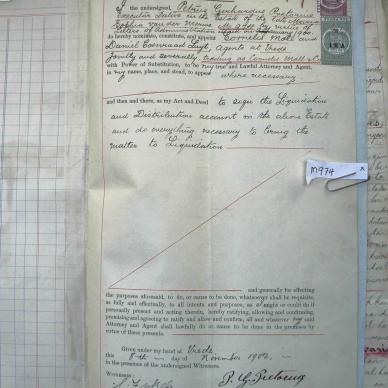 I the undersigned, Petrus Gerhardus Pretorius
Executor Dative in the Estate of the late Maria
Sophia van der Merwe
Letters of Administration
do hereby nominate, constitute, and appoint Cornelis Moll and
Daniel Coenraad Luyt, Agents at Vrede
jointly and severally, trading as Cornelis Moll & Co
with Power of Substitution, to be my true and Lawful Attorney and Agent,
in my name, place, and stead, to appear where necessary
and then and there, as my Act and Deed to sign the Liquidation
and Distribution account in the above Estate
and do everything necessary to bring the
matter to Liquidation.
M974
and generally for effecting
the purposes aforesaid, to do, or cause to be done, whatsoever shall be requisite,
as fully and effectually, to all intents and purposes, as I might or could do if
personally present and acting therein, hereby ratifying, allowing and confirming,
promising and agreeing to ratify and allow and confirm, all and whatever my said
Attorney and Agent shall lawfully do or cause to be done in the premises by
virtue of these presents.
Given under my hand at Vrede
this 8th day of November 1902.
in the presence of the undersigned Witnesses.
Witnesses:
P. G. Pretorius